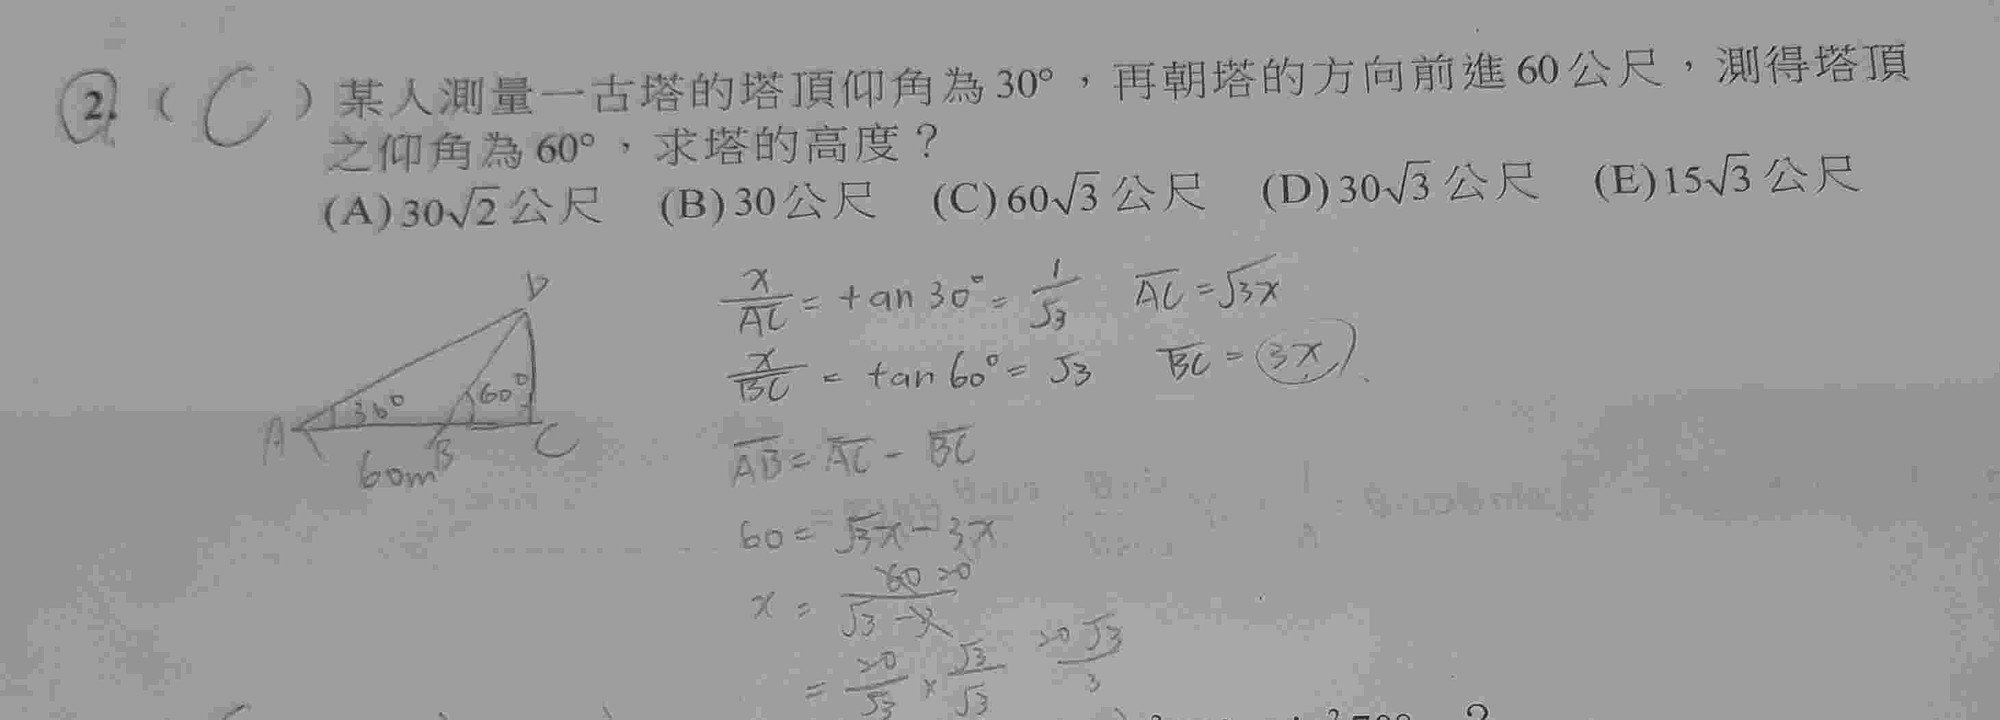 2. ( C ) 某人測量一古塔的塔頂仰角為30°，再朝塔的方向前進60公尺，測得塔頂
之仰角為60°，求塔的高度？
(A)30√2公尺 (B)30公尺 (C)60√3公尺 (D)30√3公尺 (E)15√3公尺
D
x/AC = tan 30° = 1/√3 AC = √3x
x/BC = tan 60° = √3 BC = 3x
30° 60°
A B C
60m
AB = AC - BC
60 = √3x - 3x
x = 60 20/√3 - 3
= 20/√3 × √3/√3 20√3/3